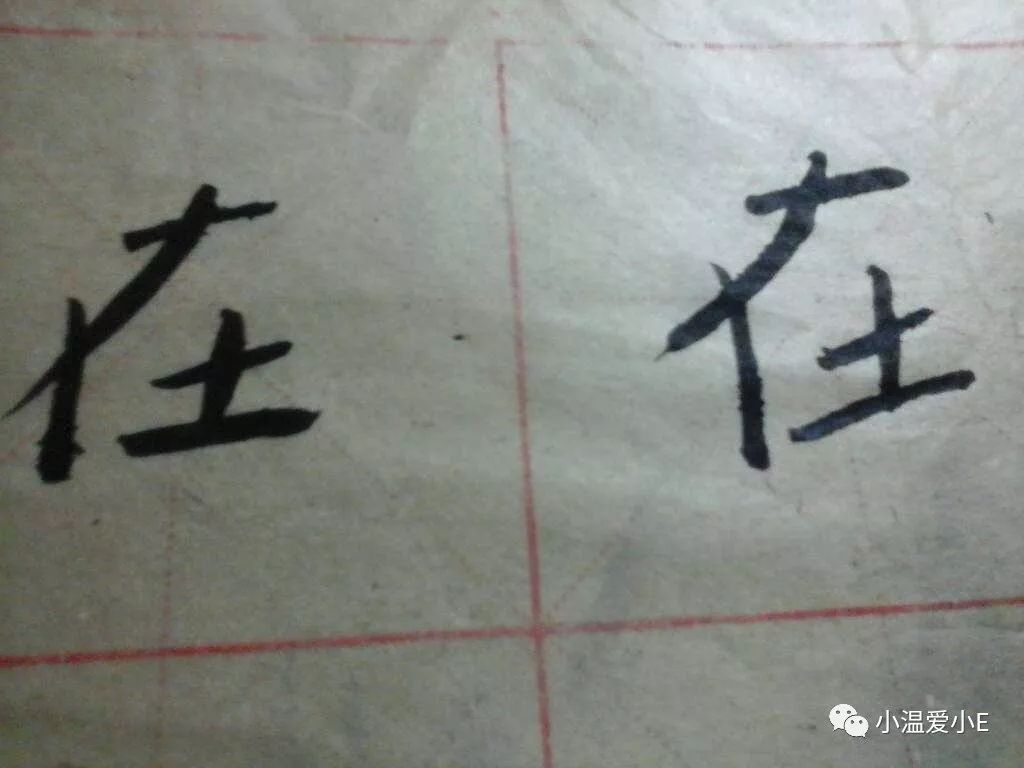 在 在
小温爱小E